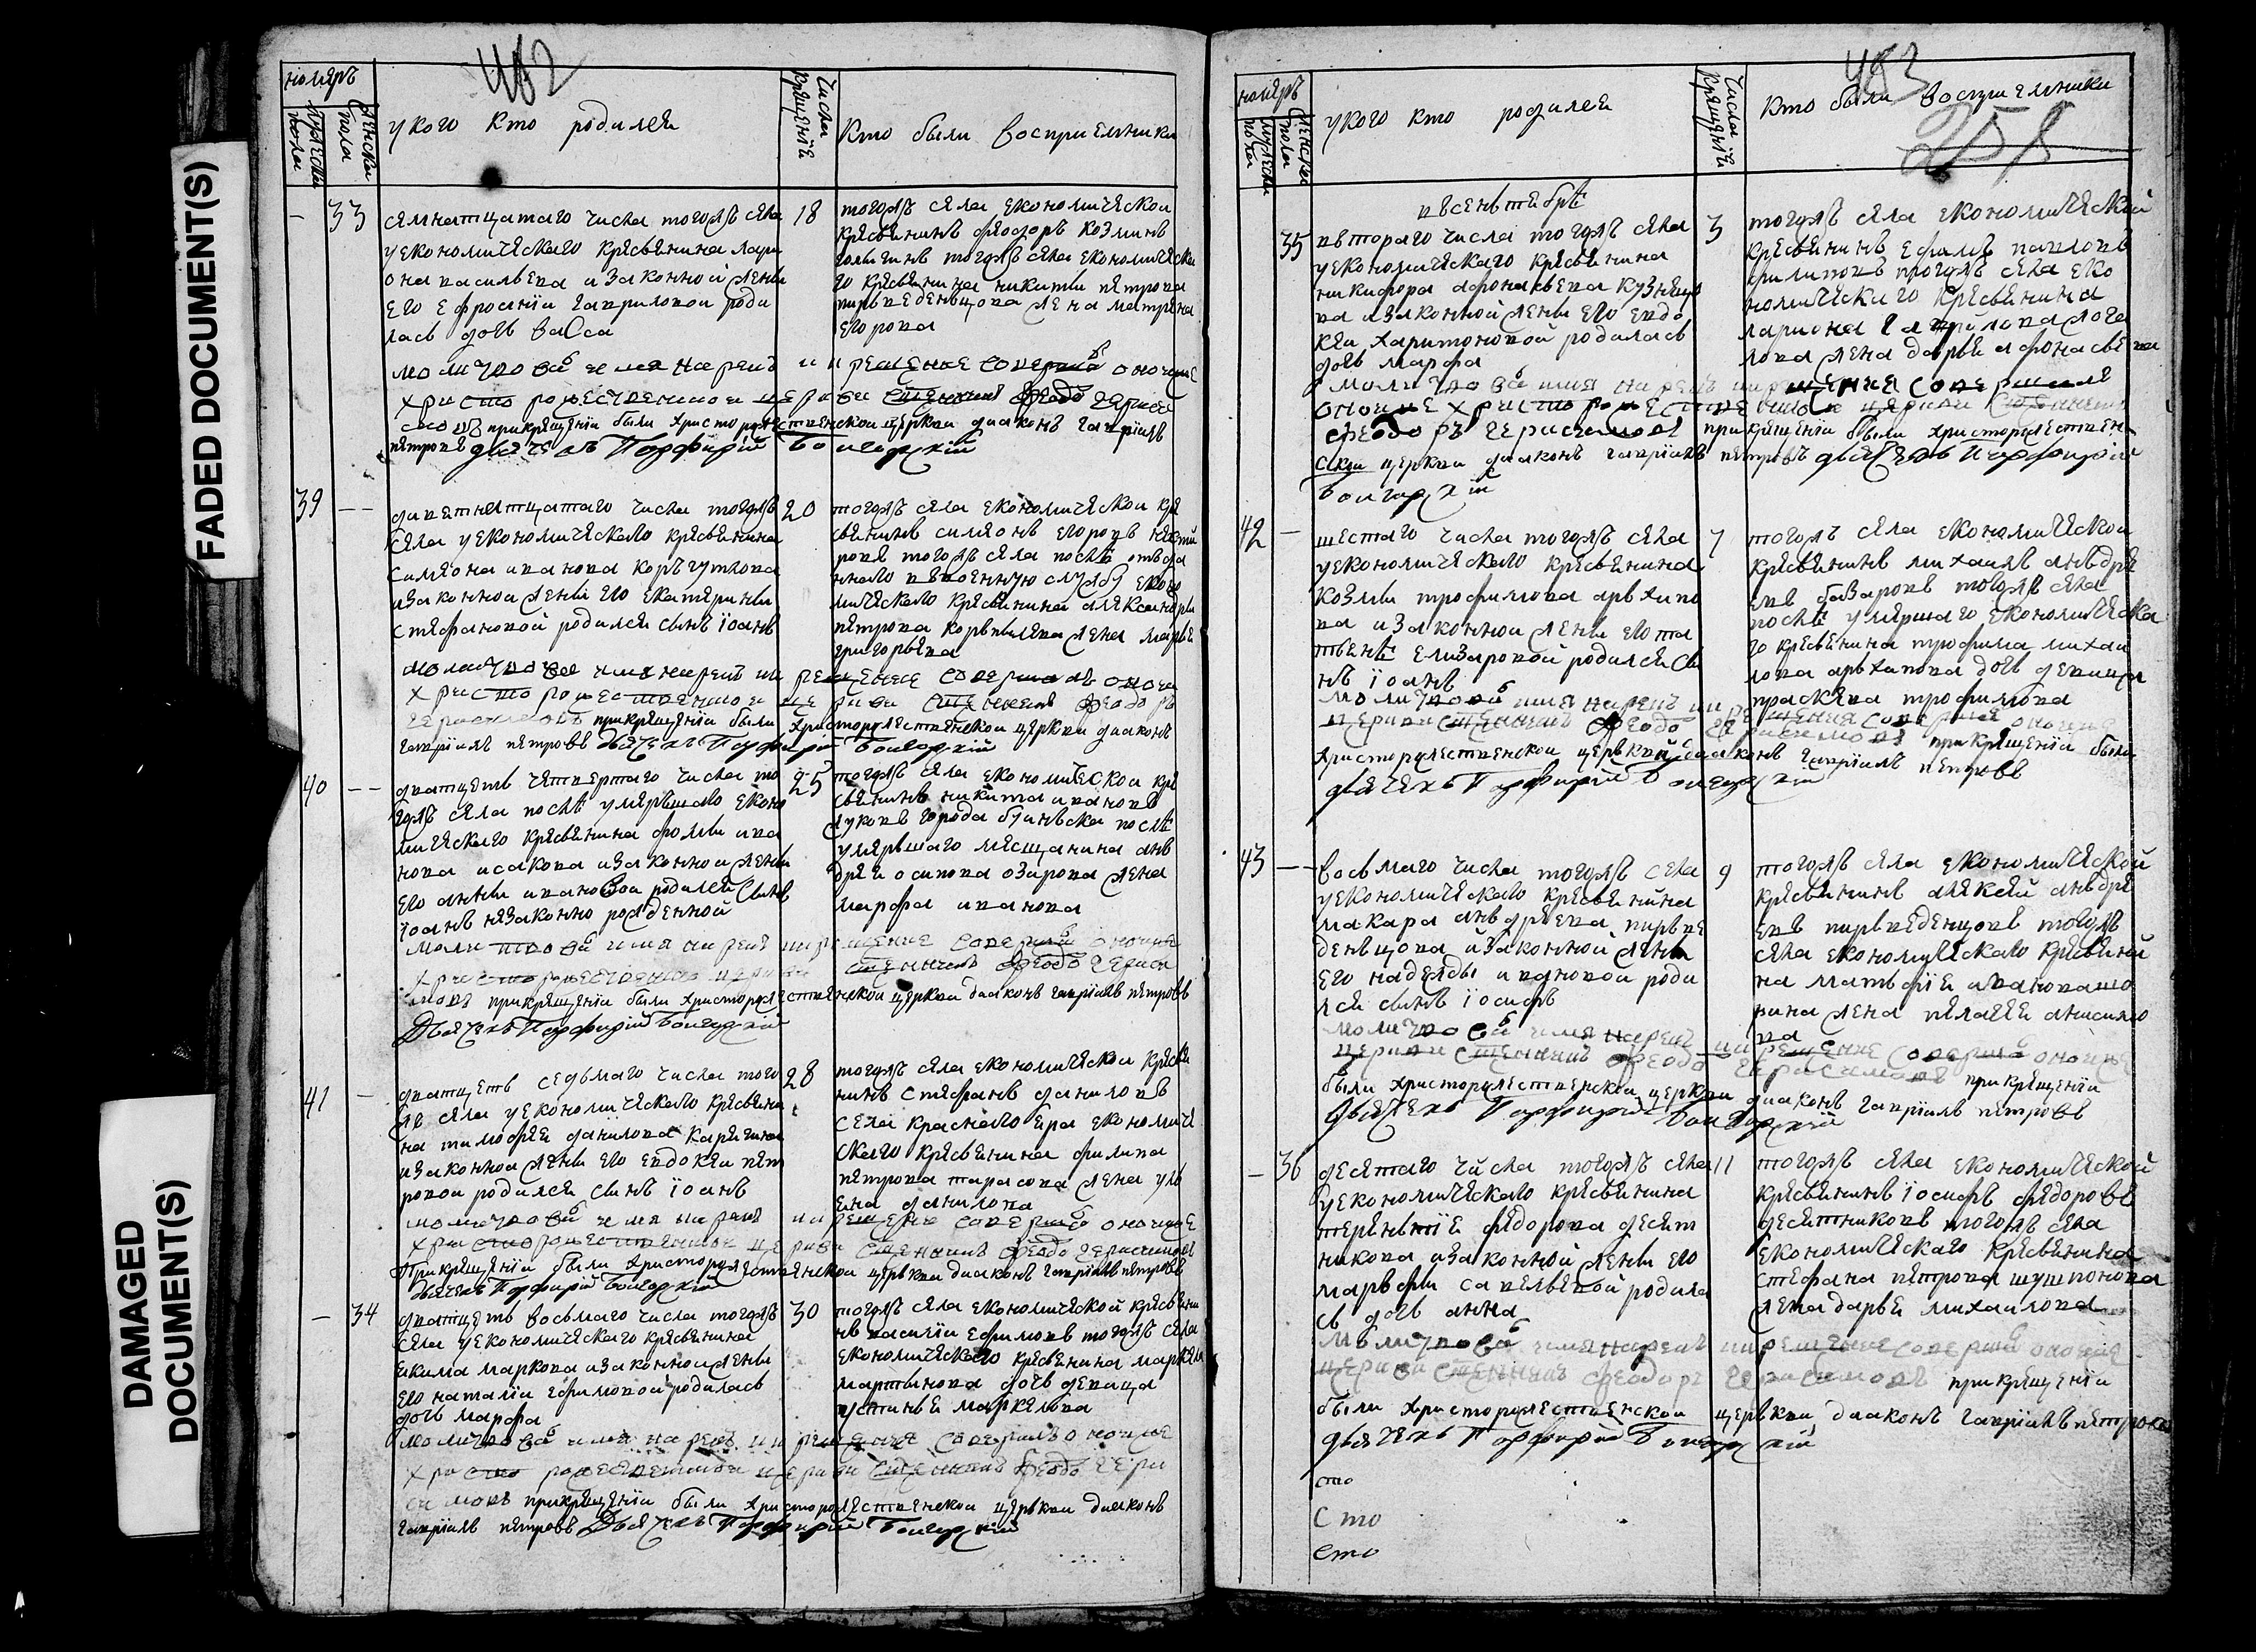 FADED DOCUMENT(S)
DAMAGED
DOCUMENT(S)
482
номеръ
мужеска пола
женска пола
у кого кто родился
числа крещенїе
кто были восприемники
33
семнатцатаго числа тогожъ села
уекономическаго кресьянина лари
она васильева изаконной жены
его ефросинїи гавриловой роди
лась дочь васса
18
тогожъ села економической
кресьянинъ феодоръ козминъ
тогожъ села економическа
го кресьянина никиты петрова
первведенцова жена матрена
егорова
молитвовалъ и имя нарекъ и крещенье совершалъ оноиже
христорождественской церкви священникъ феодоръ гераси
мовъ прикрещенїи были христорождественской церкви диаконъ гаврїилъ
петровъ дьячекъ Порфирїй
39
20
деветнатцатаго числа тогожъ
села уекономическаго кресьянина
симиона иванова
изаконной жены его екатерины
стефановой родился сынъ їоаннъ
тогожъ села економической кре
сьянинъ симионъ егоровъ
ровъ тогожъ села послѣ отъда
ннаго ввоенную службу еконо
мическаго кресьянина александры
петрова жена марья
григорьева
молитвовалъ и имя нарекъ и крещенье совершалъ оноиже
христорождественской церкви священникъ феодоръ
герасимовъ прикрещенїи были христорождественской церкви диаконъ
гаврїилъ петровъ дьячекъ Порфирїй
40
25
дватцеть четвертаго числа то
гожъ села послѣ умеръшаго еконо
мическаго кресьянина фомы ива
нова исакова изаконной жены
его анны ивановой родился сынъ
їоаннъ незаконно рожденной
тогожъ села економической кре
сьянинъ никита ивановъ
жуковъ города буинъска послѣ
умеръшаго мещанина анъ
дрея осипова озирова жена
марфа иванова
молитвовалъ и имя нарекъ и крещение совершалъ оноиже
христорождественской церкви священникъ феодоръ гераси
мовъ прикрещенїи были христорождественской церкви диаконъ гаврїилъ петровъ
Дьячекъ Порфирїй
41
28
дватцеть седьмаго числа того
жъ села уекономическаго кресьяни
на тимофея данилова карягина
изаконной жены его евдокеи пет
ровой родился сынъ їоаннъ
тогожъ села економической кресья
нинъ стефанъ даниловъ
села краснаго яра економиче
скаго кресьянина филипа
петрова тарасова жена улъ
яна данилова
молитвовалъ и имя нарекъ и крещение совершалъ оноиже
христорождественской церкви священникъ феодоръ герасимовъ
Прикрещенїи были христорождественской церкви диаконъ гаврїилъ петровъ
дьячекъ Порфирїй
34
30
дватцеть восьмаго числа тогожъ
села уекономическаго кресьянина
екима маркова изаконной жены
его наталїи ефимовой родилась
дочь марфа
тогожъ села економической кресьяни
нъ василїи ефимовъ тогожъ села
економическаго кресьянина маркела
мартынова дочь девица
устинья маркелова
молитвовалъ и имя нарекъ и крещение совершалъ оноиже
христорождественской церкви священникъ феодоръ гера
симовъ прикрещенїи были христорождественской церкви диаконъ
гаврїилъ петровъ Дьячекъ Порфирїй
483
258
номеръ
мужеска пола
женска пола
у кого кто родился
числа крещенїи
кто были восприемники
въсеньтебрѣ
35
3
втораго числа тогожъ села
уекономическаго кресьянина
никифора афонасьева кузнецо
ва изаконной жены его евдо
кеи харитоновой родилась
дочь марфа
тогожъ села економической
кресьянинъ ефимъ павловъ
филиповъ тогожъ села еко
номическаго кресьянина
лариона гаврилова
жена дарья афонасьева
молитвовалъ имя нарекъ и крещения совершалъ
оноиже христорождественской церкви священникъ
феодоръ герасимовъ прикрещенїи были христорождествен
ской церкви диаконъ гаврїилъ петровъ дьячекъ Порфирїй
42
7
шестаго числа тогожъ села
уекономическаго кресьянина
козмы трофимова арьхипо
ва изаконной жены его та
тьяны елизаровой родился сы
нъ їоаннъ
тогожъ села економической
кресьянинъ михаилъ анъдре
евъ базаровъ тогожъ села
послѣ умершаго економическа
го кресьянина трофима михаи
лова арьхипова дочь девица
прасковья трофимова
молитвовалъ имя нарекъ и крещения совершалъ оноиже
церкви священникъ феодоръ герасимовъ прикрещенїи были
христорождественской церькви диаконъ гаврїилъ петровъ
дьячекъ Порфирїй
43
9
восьмаго числа тогожъ села
уекономическаго кресьянина
макара анъдреева первве
денъцова изаконной жены
его надежды ивановой роди
лся сынъ їосифъ
тогожъ села економической
кресьянинъ алексей анъдре
евъ первведенцовъ тогожъ
села економическаго кресьяни
на матьфїя иванова
рина жена пелагея анисимо
ва
молитвовалъ имя нарекъ и крещение совершалъ оноиже
церкви священникъ феодоръ герасимовъ прикрещенїи
были христорождественской церкви диаконъ гаврїилъ петровъ
Дьячекъ Порфирїй
36
11
десятаго числа тогожъ села
уекономическаго кресьянина
тереньтїя федорова десят
никова изаконной жены его
марьфы савельевой родила
сь дочь анна
тогожъ села економической
кресьянинъ їосифъ федоровъ
десятниковъ тогожъ села
економическаго кресьянина
стефана петрова шушпонова
жена дарья михаилова
молитвовалъ имя нарекъ и крещение совершалъ оноиже
церкви священникъ феодоръ герасимовъ прикрещенїи
были христорождественской церькви диаконъ гаврїилъ петровъ
дьячекъ Порфирїй
сто
Сто
сто